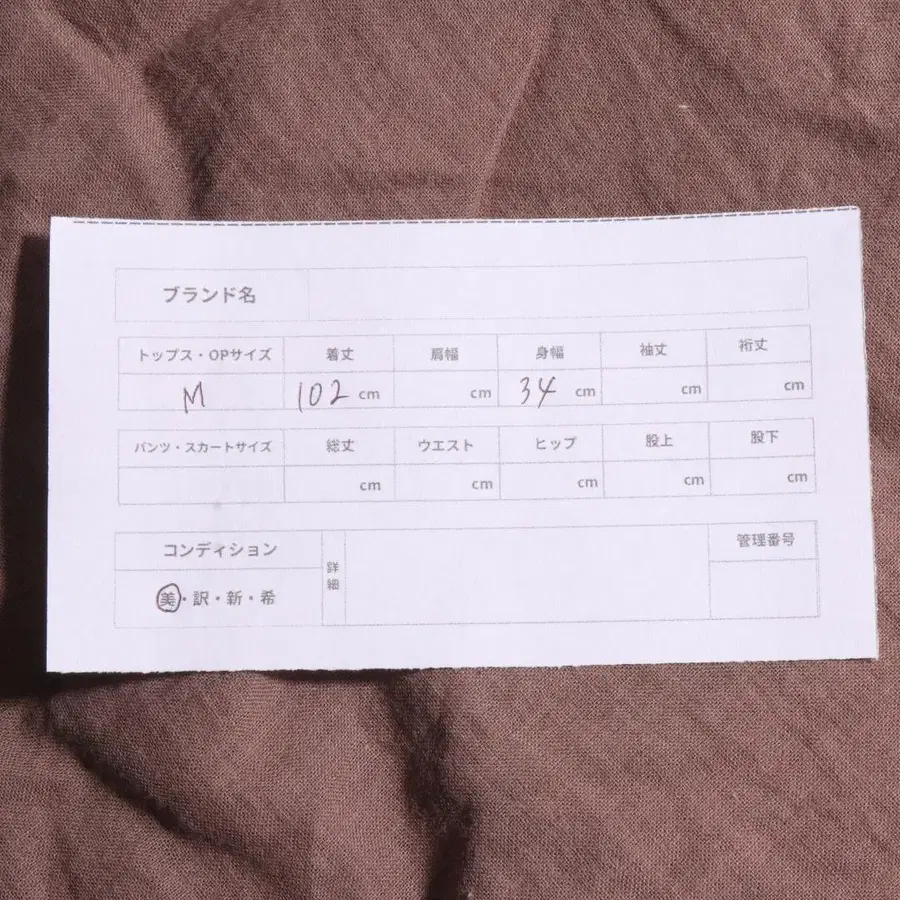 ブランド名
トップス・OPサイズ 着丈 肩幅 身幅 袖丈 裄丈
M 102 cm cm 34 cm cm cm
パンツ・スカートサイズ 総丈 ウエスト ヒップ 股上 股下
cm cm cm cm cm
コンディション 詳細 管理番号
美・訳・新・希